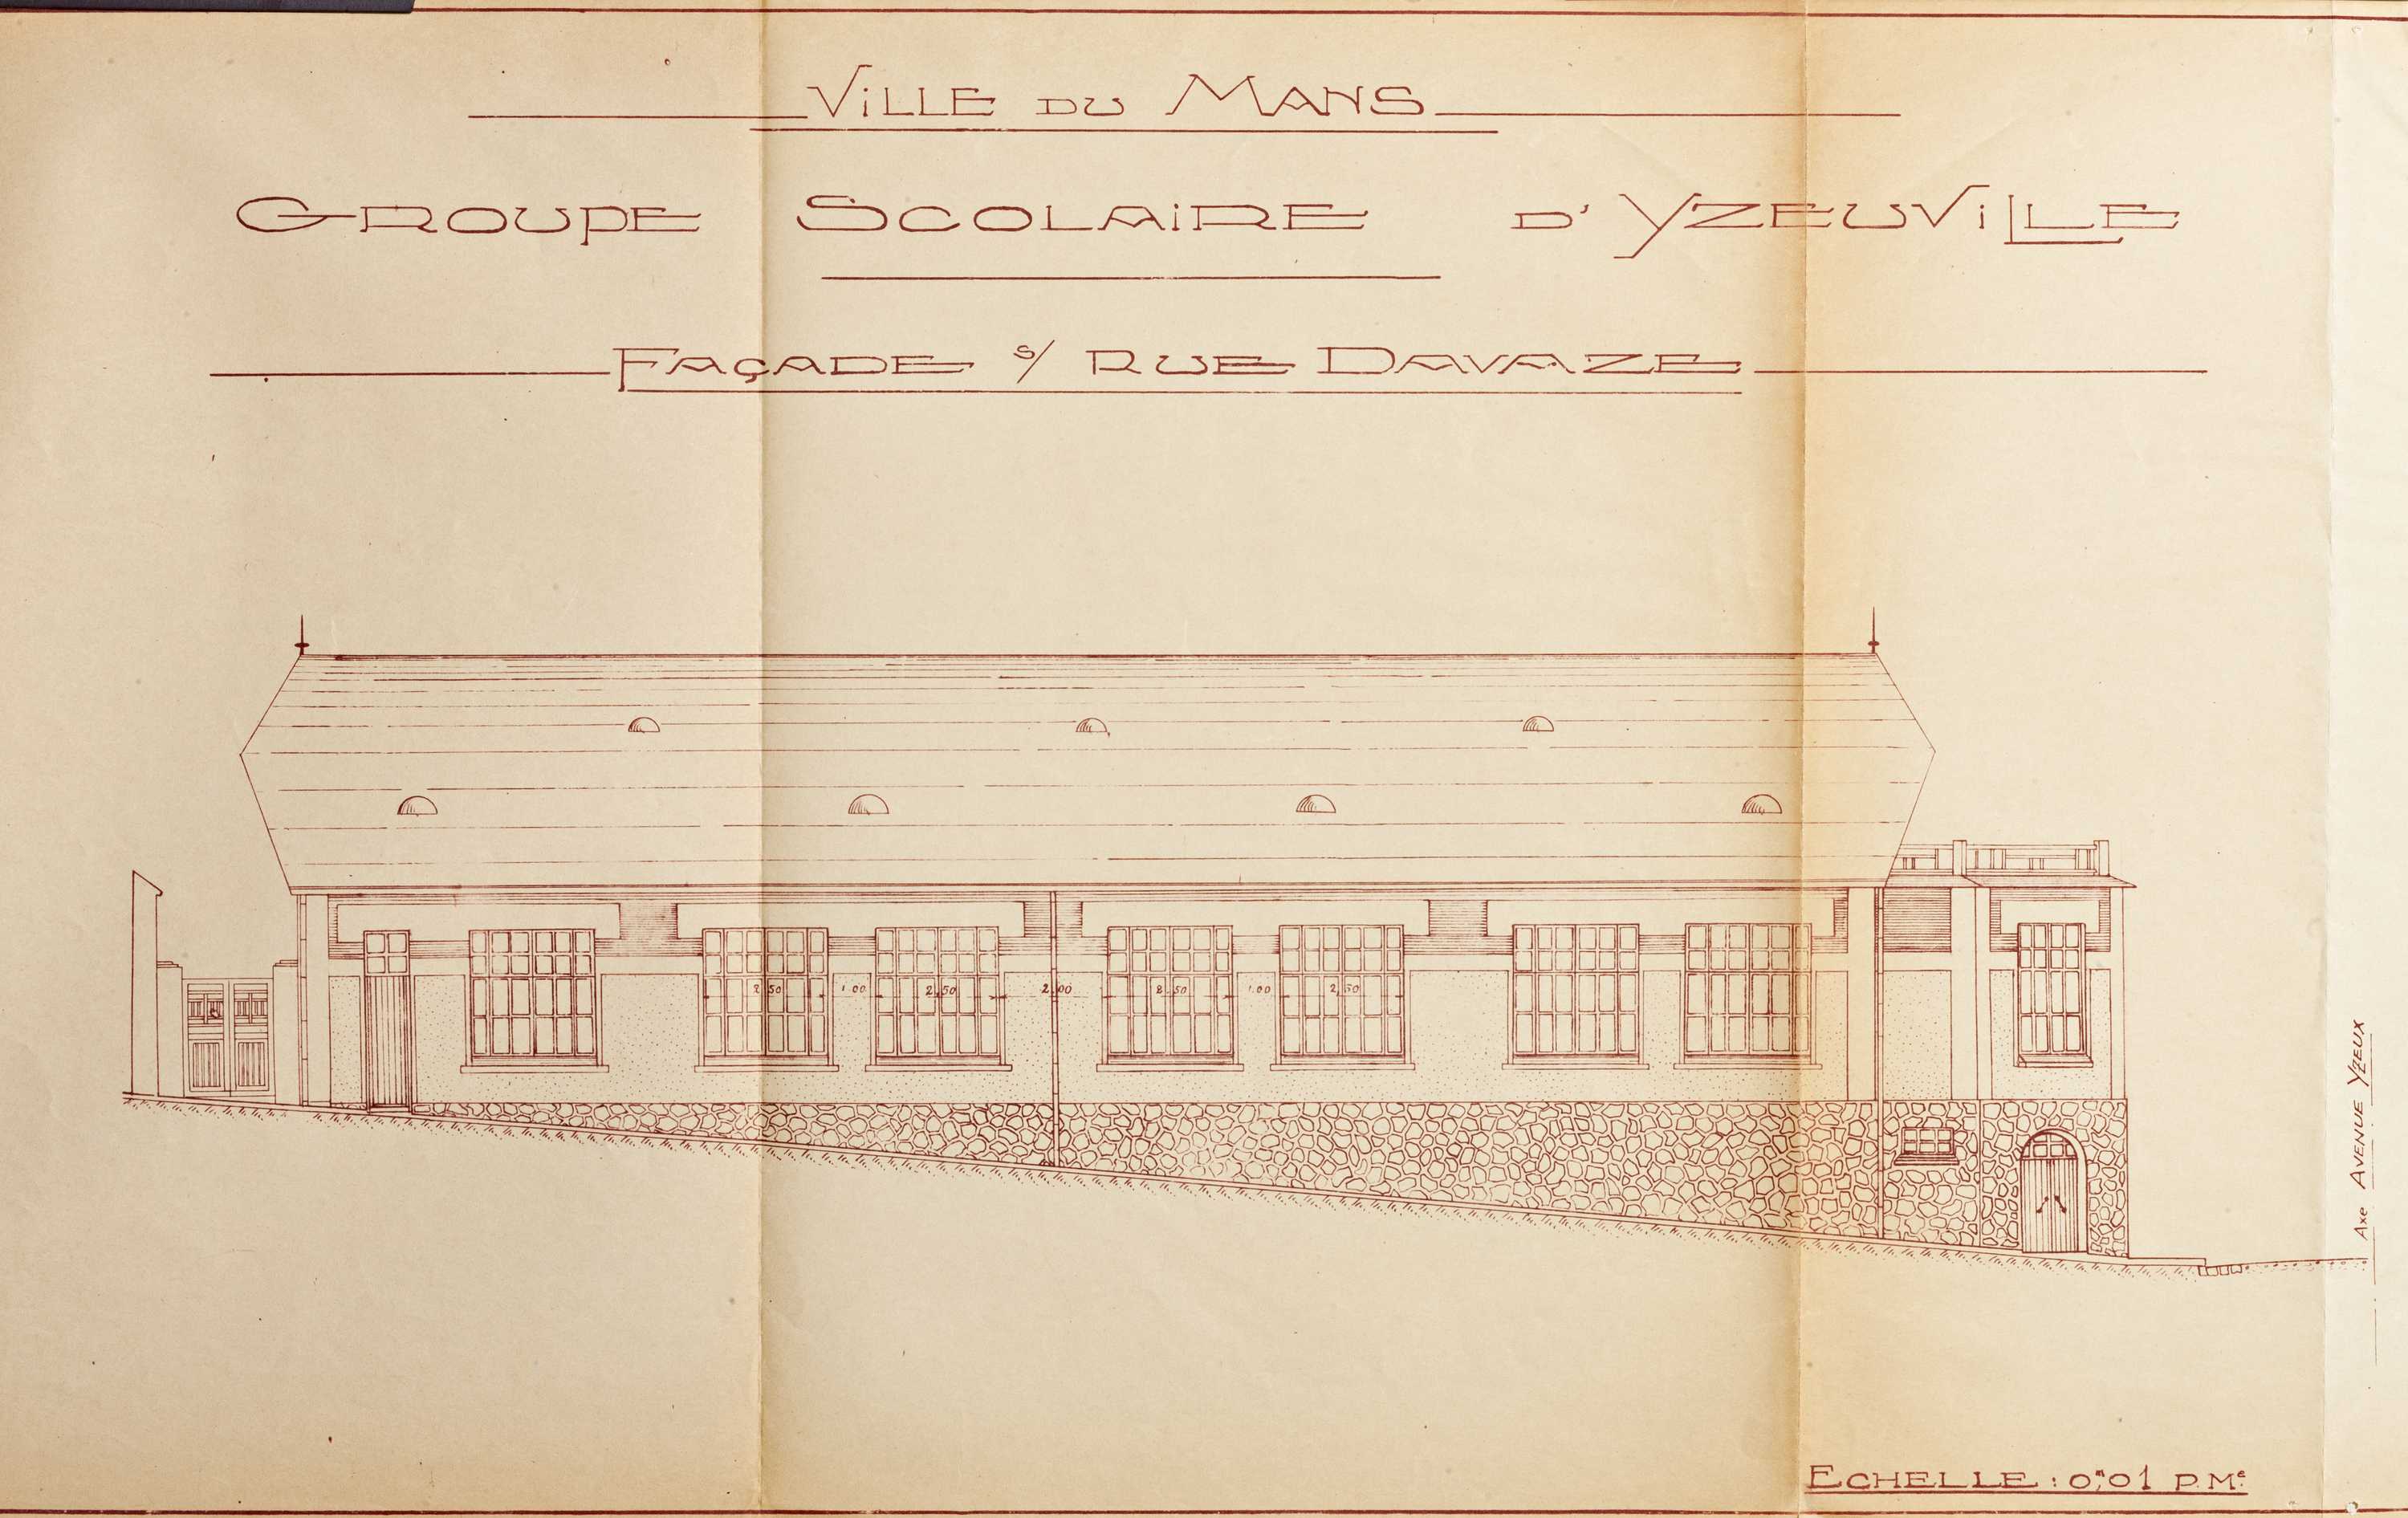 ViLLE DU MANS
GROUPE SCOLAiRE D' YZEUViLLE
FAÇADE s/ RUE DAVAZE
2,50 1.00 2,50 2,00 2,50 1.00 2,50
AXE AVENUE YZEUX
ECHELLE : 0,m01 P.Me.